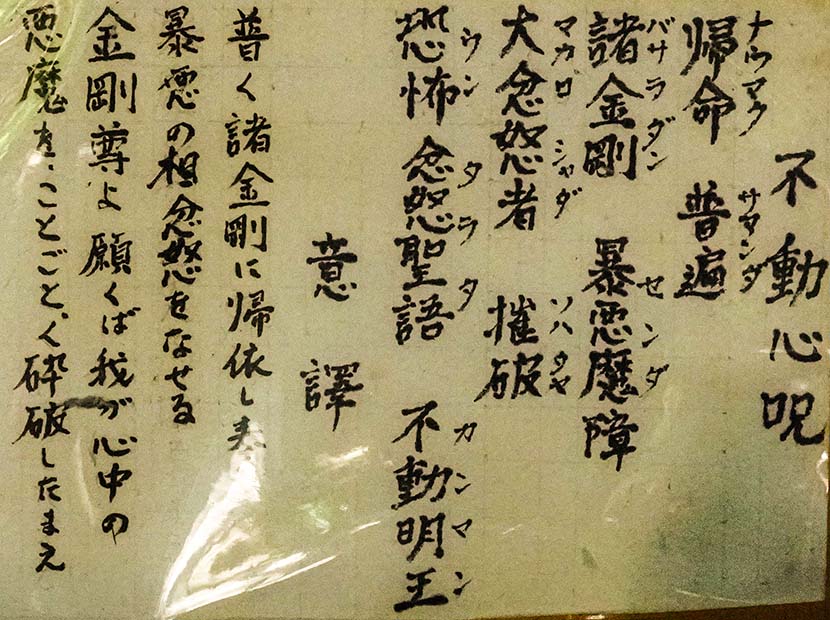 不動心呪
ナウマク サマンダ
帰命 普遍
バサラダン センダ
諸金剛 暴悪魔障
マカロシャダ ソハタヤ
大忿怒者 摧破
ウン タラタ カンマン
恐怖 忿怒聖語 不動明王
意譯
普く諸金剛に帰依します
暴悪の相忿怒をなせる
金剛尊よ願くば我が心中の
悪魔を、ことごとく砕破したまえ